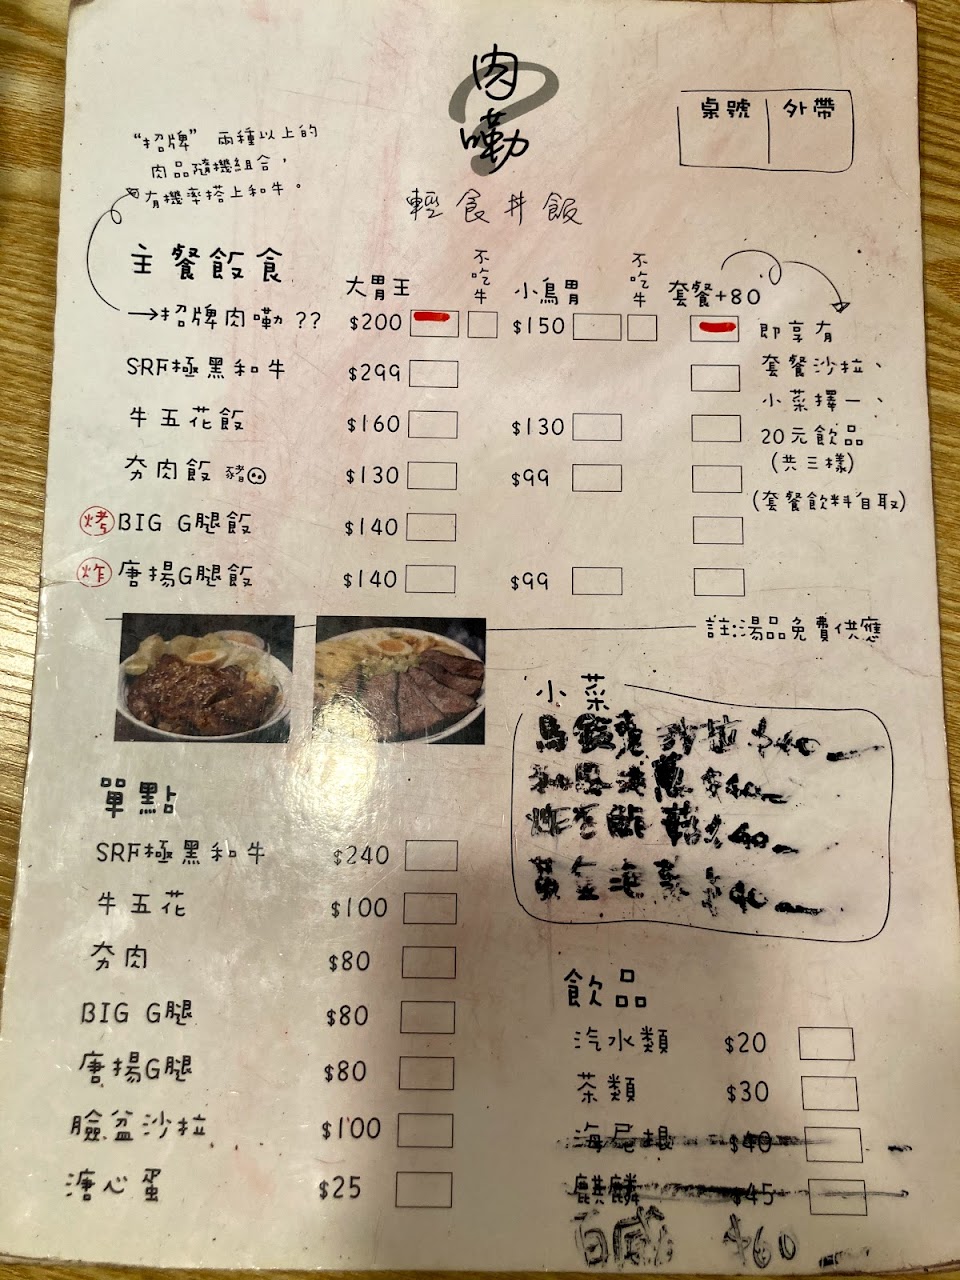 肉
嘞
桌號 外帶
"招牌" 兩種以上的
肉品隨機組合，
有機率搭上和牛。
輕食丼飯
主餐飯食
大胃王 不吃牛 小鳥胃 不吃牛 套餐+80
招牌肉嘞 ?? $200 $150
SRF極黑和牛 $299
牛五花飯 $160 $130
夯肉飯 豬 $130 $99
烤 BIG G腿飯 $140
炸 唐揚G腿飯 $140 $99
即享有
套餐沙拉、
小菜擇一、
20元飲品
(共三樣)
(套餐飲料自取)
註:湯品免費供應
小菜
沙拉 $40
$40
炸 40
黃金泡菜 $40
單點
SRF極黑和牛 $240
牛五花 $100
夯肉 $80
BIG G腿 $80
唐揚G腿 $80
臉盆沙拉 $100
溏心蛋 $25
飲品
汽水類 $20
茶類 $30
海尼根 $40
麒麟 $45
百威 $60